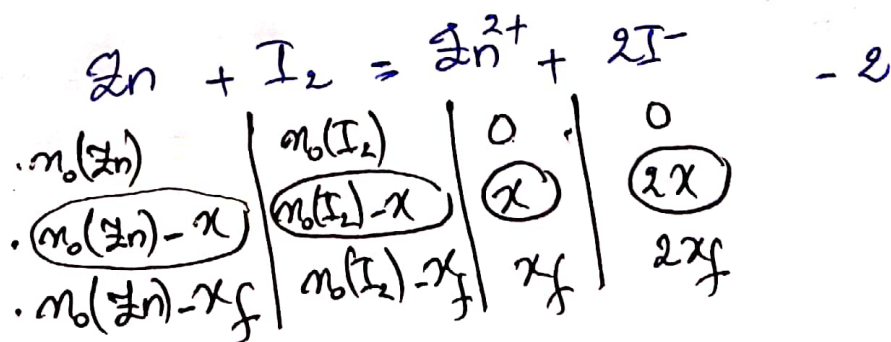 Zn + I₂ = Zn²⁺ + 2I⁻ - 2
. n₀(Zn) | n₀(I₂) | 0 | 0
. n₀(Zn) - x | n₀(I₂) - x | x | 2x
. n₀(Zn) - x_f | n₀(I₂) - x_f | x_f | 2x_f